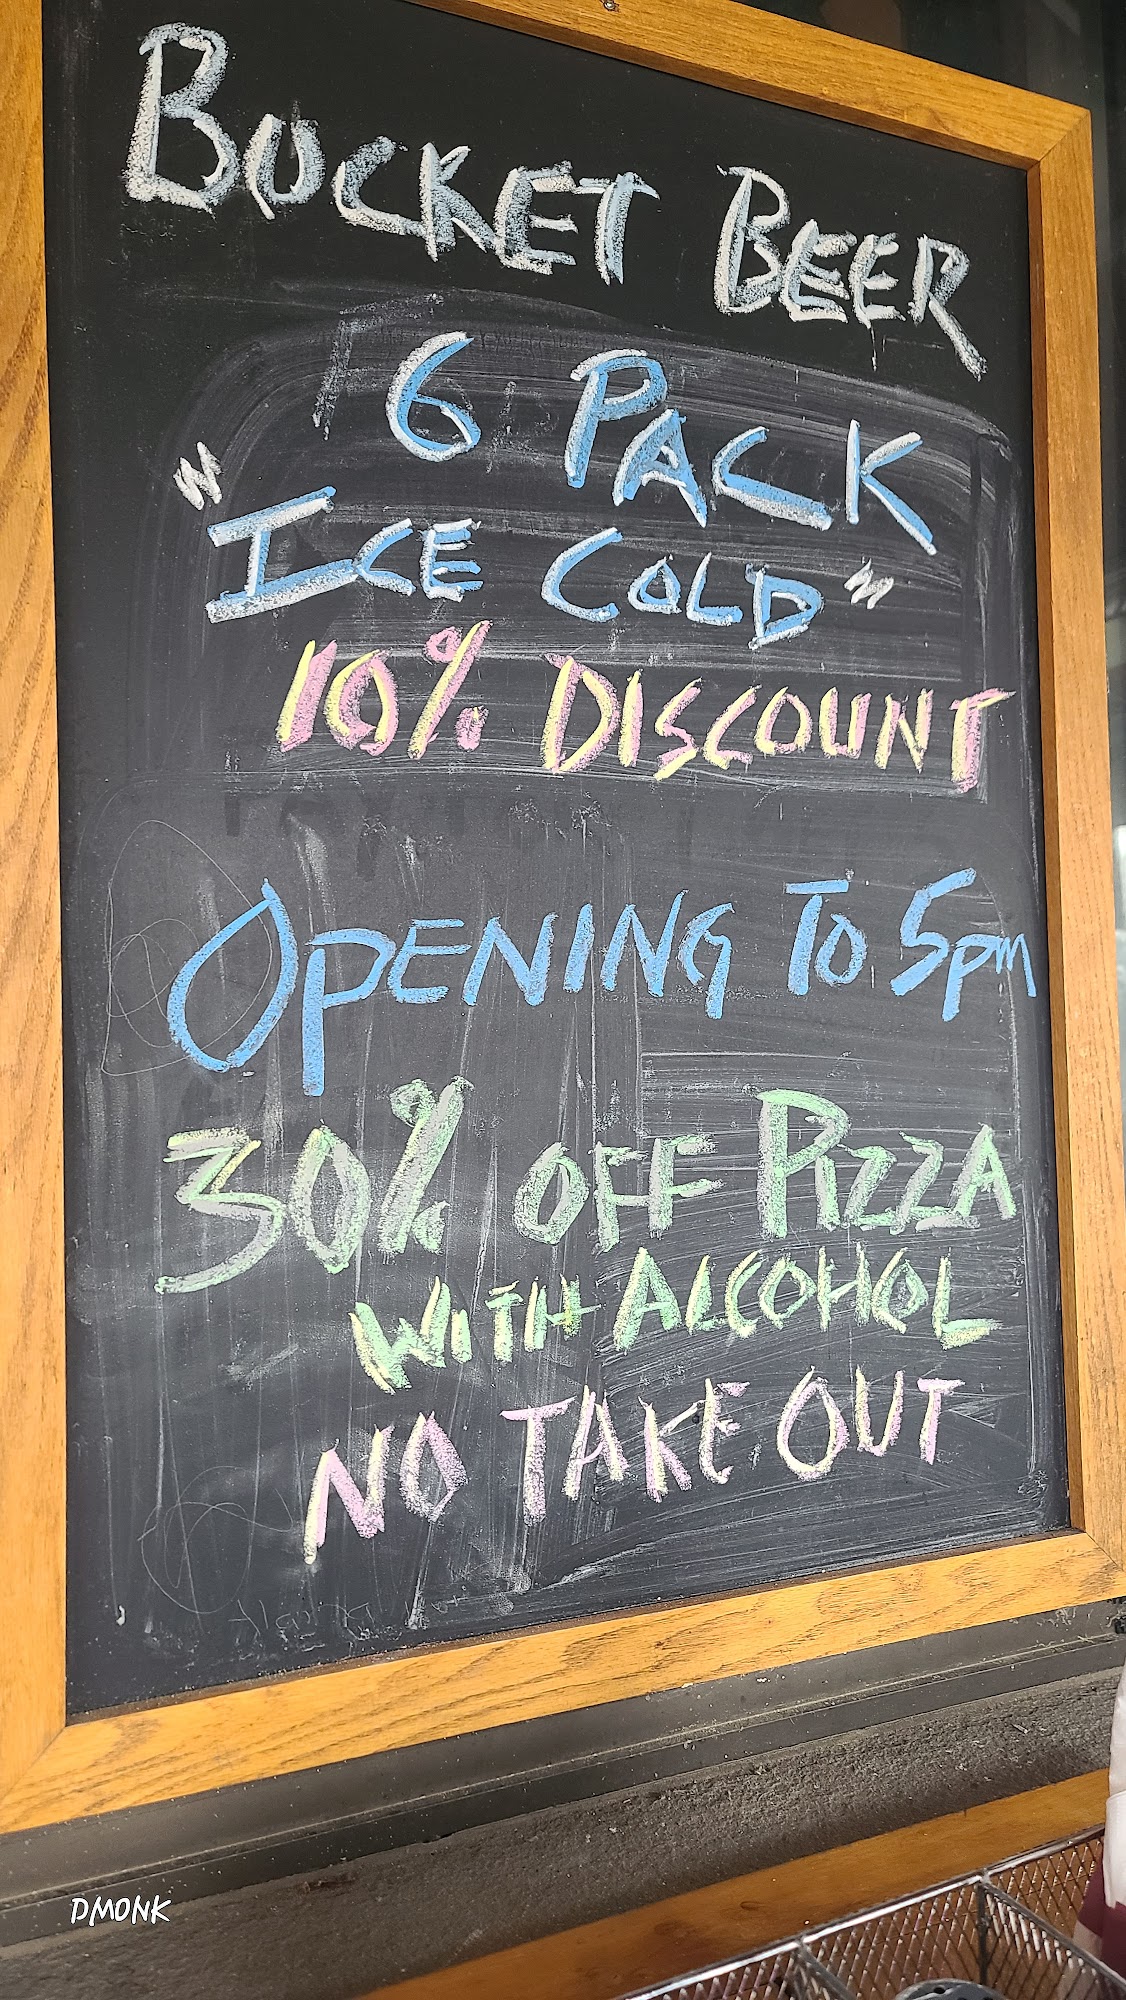 BUCKET BEER
6 PACK
"ICE COLD"
10% DISCOUNT
OPENING TO 5pm
30% OFF PIZZA
WITH ALCOHOL
NO TAKE OUT
DMONK